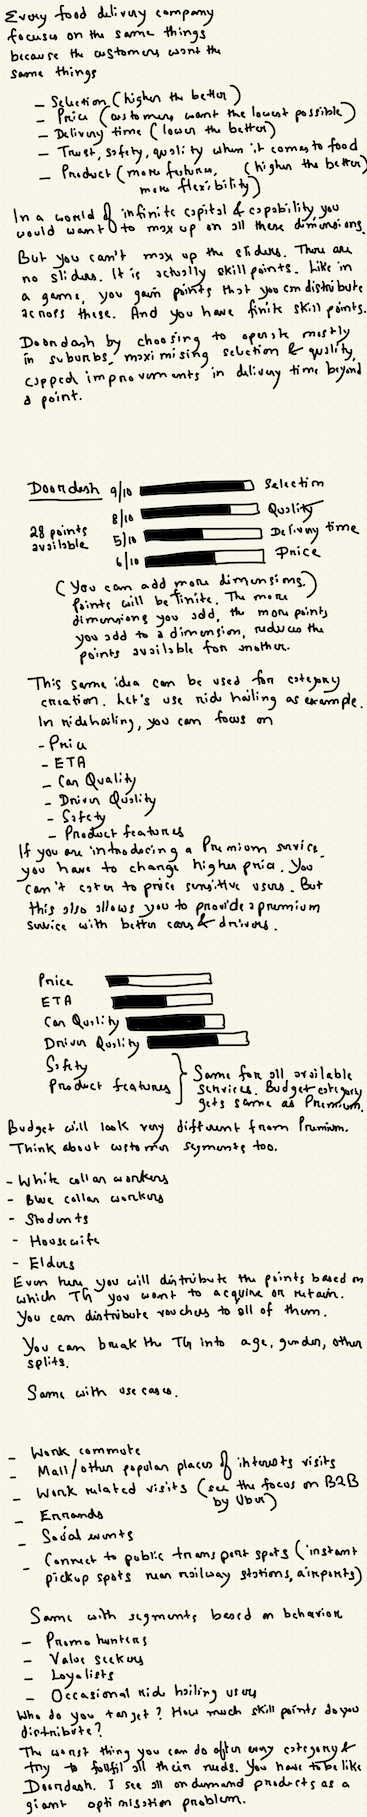 Every food delivery company
focuses on the same things
because the customers want the
same things
– Selection (higher the better)
– Price (customers want the lowest possible)
– Delivery time (lower the better)
– Trust, safety, quality when it comes to food
– Product (more features, (higher the better)
more flexibility)
In a world of infinite capital & capability you
would want to max up on all these dimensions.
But you can't max up the sliders. There are
no sliders. It is actually skill points. Like in
a game, you gain points that you can distribute
across these. And you have finite skill points.
Doordash by choosing to operate mostly
in suburbs, maximising selection & quality,
capped improvements in delivery time beyond
a point.
Doordash 9/10 Selection
8/10 Quality
28 points
available
5/10 Delivery time
6/10 Price
(You can add more dimensions.)
Points will be finite. The more
dimensions you add, the more points
you add to a dimension, reduces the
points available for another.
This same idea can be used for category
creation. Let's use ride hailing as example.
In ridehailing, you can focus on
- Price
- ETA
- Car Quality
- Driver Quality
- Safety
- Product features
If you are introducing a Premium service,
you have to charge higher price. You
can't cater to price sensitive users. But
this also allows you to provide a premium
service with better cars & drivers.
Price
ETA
Car Quality
Driver Quality
Safety
Product features
Same for all available
services. Budget category
gets same as Premium.
Budget will look very different from Premium.
Think about customer segments too.
- White collar workers
- Blue collar workers
- Students
- Housewife
- Elders
Even here you will distribute the points based on
which TG you want to acquire or retain.
You can distribute vouchers to all of them.
You can break the TG into age, gender, other
splits.
Same with use cases.
- Work commute
- Mall/other popular places of interests visits
- Work related visits (see the focus on B2B
by Uber)
- Errands
- Social events
- Connect to public transport spots (instant
pickup spots near railway stations, airports)
Same with segments based on behavior
- Promo hunters
- Value seekers
- Loyalists
- Occasional ride hailing users
Who do you target? How much skill points do you
distribute?
The worst thing you can do after every category &
try to fulfil all their needs. You have to be like
Doordash. I see all on demand products as a
giant optimisation problem.